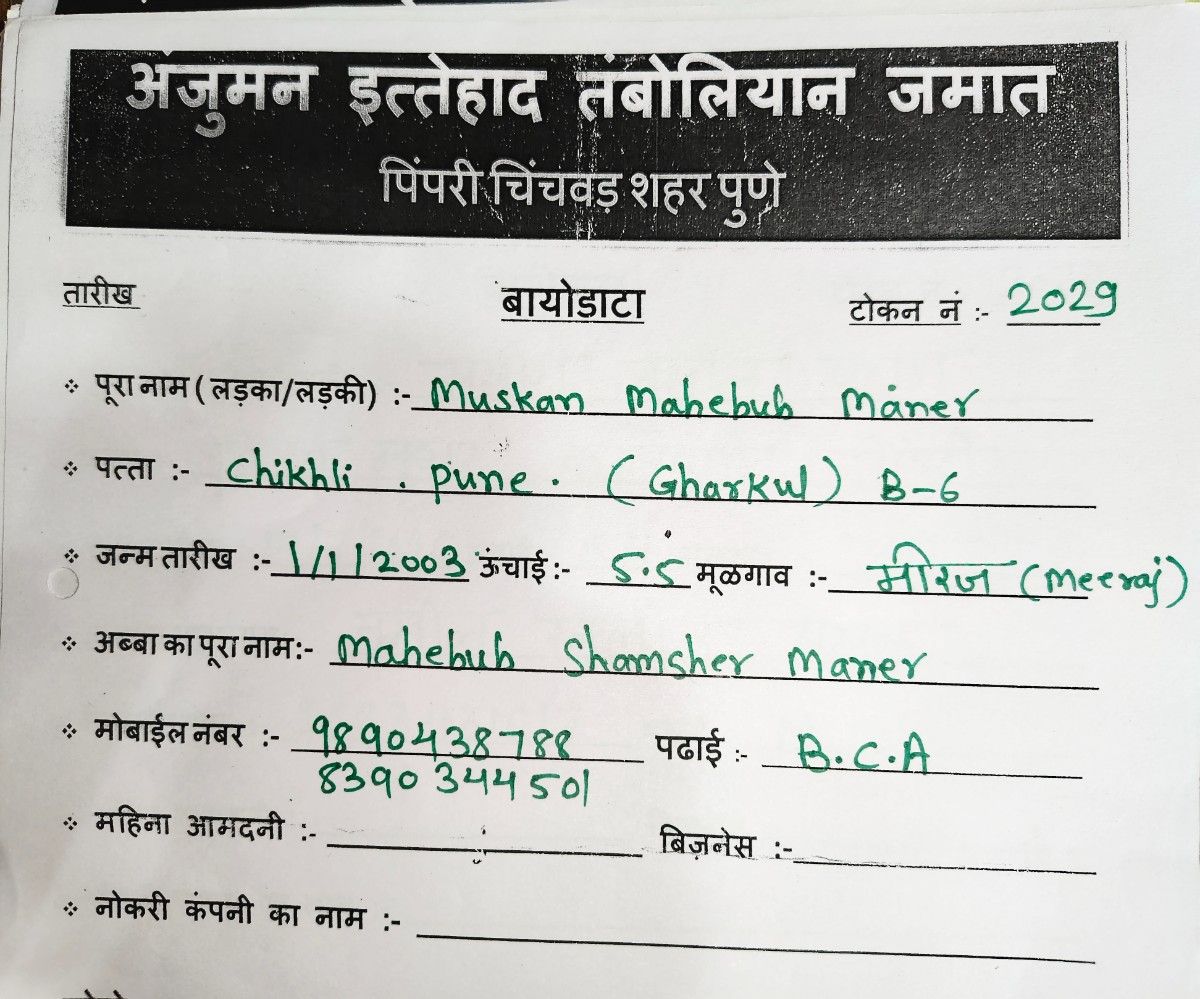 अंजुमन इत्तेहाद तंबोलियान जमात
पिंपरी चिंचवड़ शहर पुणे
तारीख बायोडाटा टोकन नं :- 2029
❖ पूरा नाम ( लड़का/लड़की) :- Muskan Mahebub Maner
❖ पत्ता :- Chikhli . Pune . (Gharkul) B-6
❖ जन्म तारीख :- 1/1/2003 ऊंचाई :- 5.5 मूळगाव :- मीरज (Meeraj)
❖ अब्बा का पूरा नाम:- Mahebub Shamsher Maner
❖ मोबाईल नंबर :- 9890438788 पढाई :- B.C.A
8390344501
❖ महिना आमदनी :- बिज़नेस :-
❖ नोकरी कंपनी का नाम :-